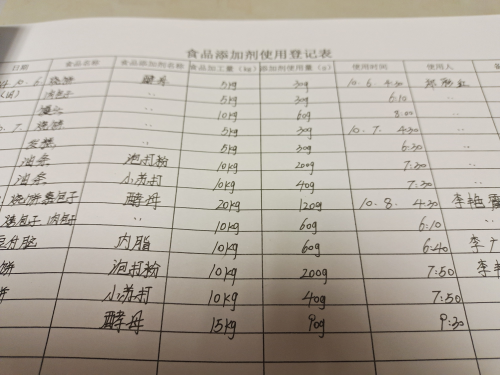 食品添加剂使用登记表
日期 食品名称 食品添加剂名称 食品加工量（kg） 添加剂使用量（g） 使用时间 使用人
10.6. 烧饼 酵母 5kg 30g 10.6. 4:30
肉包子 〃 5kg 30g 6:10 〃
馒头 〃 10kg 60g 8:00 〃
10.7. 烧饼 〃 5kg 30g 10.7. 4:30 〃
〃 5kg 30g 6:30 〃
油条 泡打粉 10kg 200g 7:30 〃
油条 小苏打 10kg 40g 7:30 〃
烧饼 包子 酵母 20kg 120g 10.8. 4:30 李
包子 肉包子 〃 10kg 60g 6:10 〃
内脂 10kg 60g 6:40 李
饼 泡打粉 10kg 200g 7:50 李
饼 小苏打 10kg 40g 7:50
酵母 15kg 90g 9:30